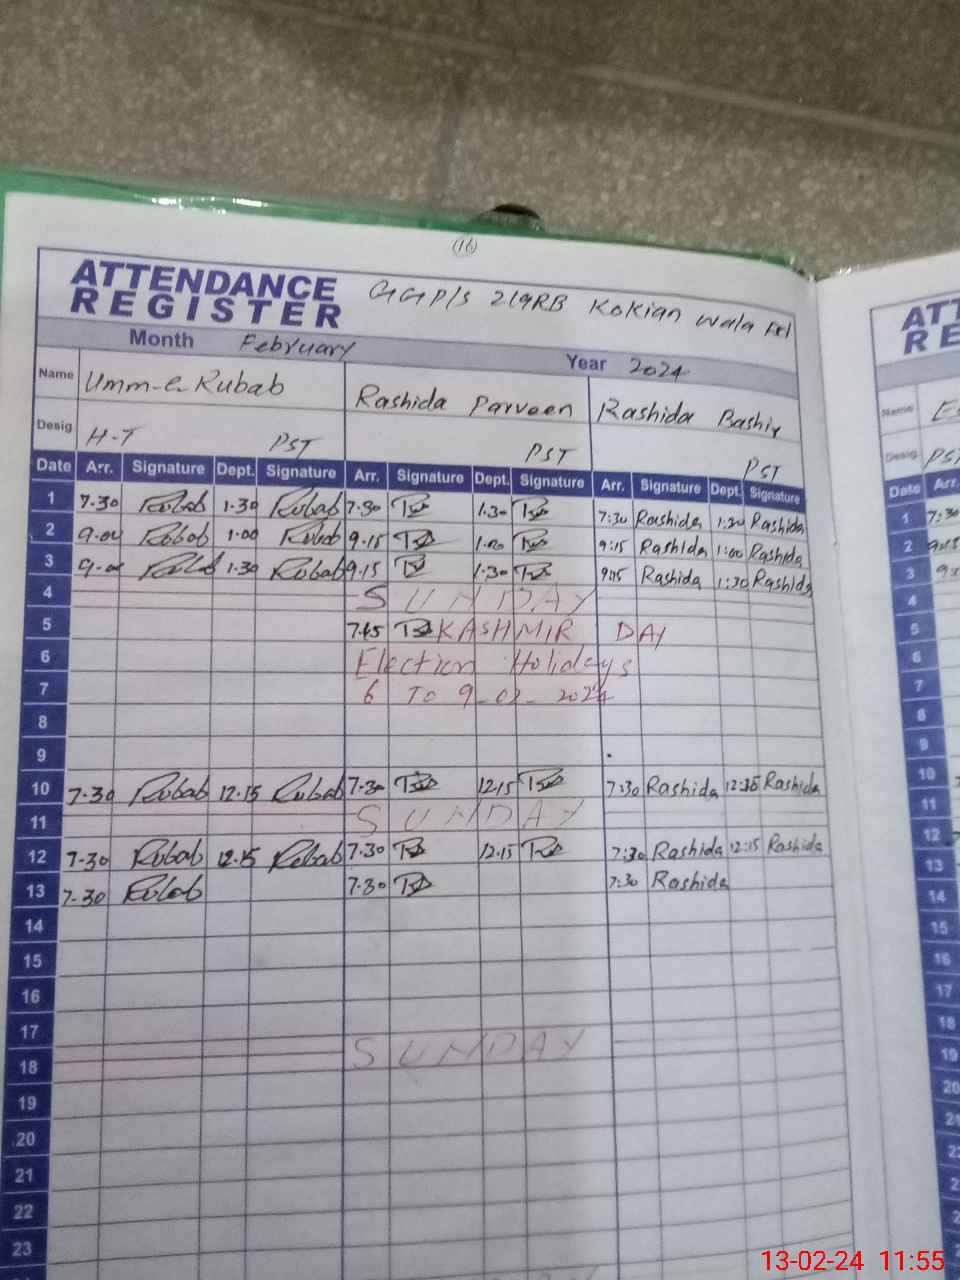 16
ATTENDANCE REGISTER
GGP/S 219RB Kokian Wala Fd
Month February Year 2024
Name Umm-e-Rubab Rashida Parveen Rashida Bashir
Desig H-T PST PST PST
Date Arr. Signature Dept. Signature Arr. Signature Dept. Signature Arr. Signature Dept. Signature
1 7-30 Rubab 1.30 Rubab 7-30 1.30 7:30 Rashida 1:30 Rashida
2 9.00 Rubab 1.00 Rubab 9.15 1.00 9:15 Rashida 1:00 Rashida
3 9.00 Rubab 1.30 Rubab 9.15 1.30 9:15 Rashida 1:30 Rashida
4 SUNDAY
5 7.45 KASHMIR DAY
6 Election Holidays
7 6 TO 9-02-2024
8
9
10 7-30 Rubab 12.15 Rubab 7-30 12.15 7:30 Rashida Rashida
11 SUNDAY
12 7-30 Rubab 12.15 Rubab 7-30 12.15 7:30 Rashida 12:15 Rashida
13 7-30 Rubab 7-30 7:30 Rashida
14
15
16
17
18 SUNDAY
19
20
21
22
23
ATT
RE
Name
Desig. PST
Date Arr.
1 7:30
2
3
4
5
6
7
8
9
10
11
12
13
14
15
16
17
18
19
20
13-02-24 11:55